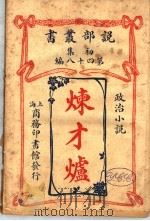 說部叢書
初集
第四十八編
政治小說
煉才爐
上海商務印書館發行